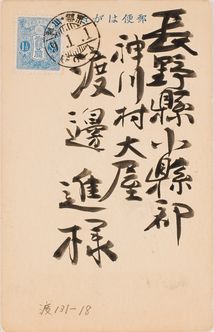 郵便はがき
長野縣小縣郡
神川村大屋
渡邊進様
渡131-18